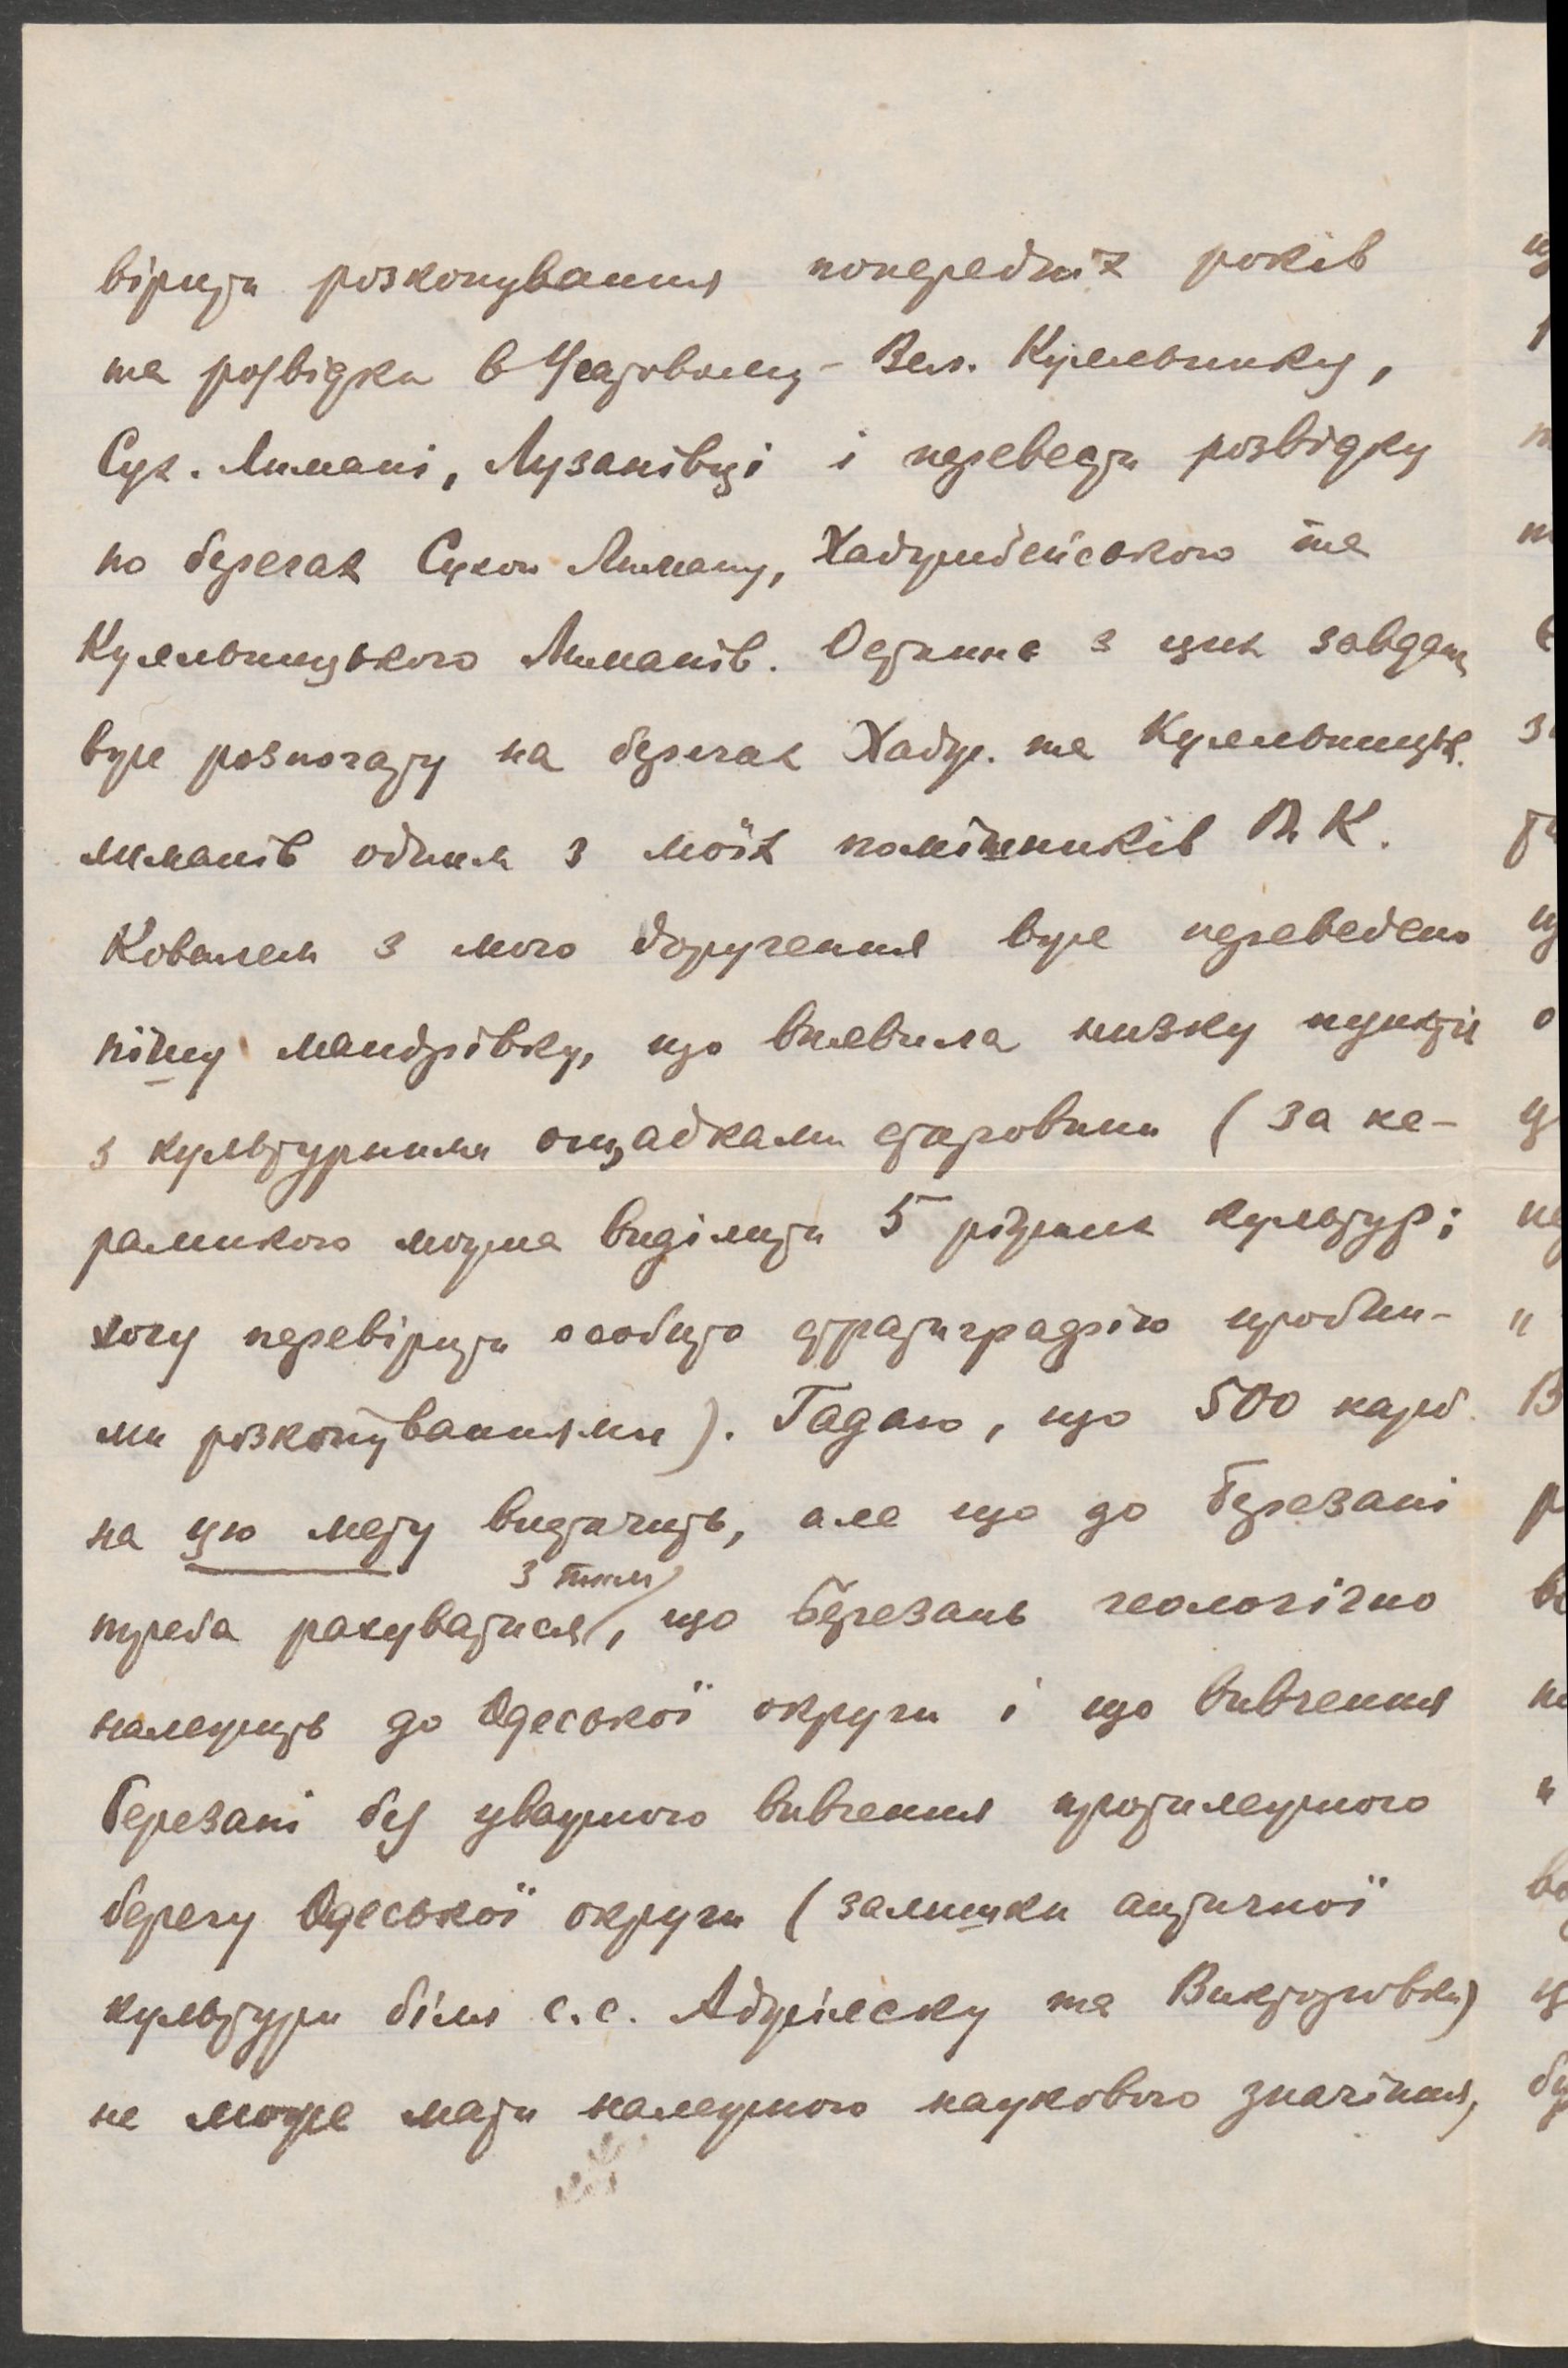 вірити розкопування попередніх років
та розвідки в Усатовому - Вел. Куяльнику,
Сух. Лимані, Лузанівці і перевести розвідку
по берегах Сухого Лиману, Хаджибейського та
Куяльницького Лиманів. Останнє з цих завдань
вже розпочату на берегах Хадж. та Куяльницьк.
лиманів одним з моїх помішників К.
Ковалем з мого доручення вже переведено
пішу мандрівку, що виявила низку пунктів
з культурними осадками старовини (за ке-
рамикою можна виділити 5 різних культур;
хочу перевірити особисто стратиграфію пробни-
ми розкопуваннями). Гадаю, що 500 карб.
на цю мету вистачить, але що до Березані
треба рахуватися з тим, що Березань геологічно
належить до Одеської округи і що вивчення
Березані без уважного вивчення протилежного
берегу Одеської округи (залишки античної
культури біля с.с. Аджіяску та Вікторовки)
не може мати належного наукового значіння,